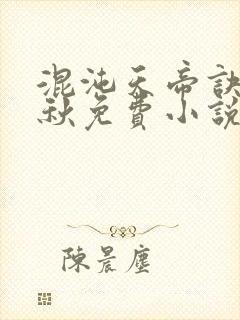 混沌天帝訣
秋免費小說
陳晨塵